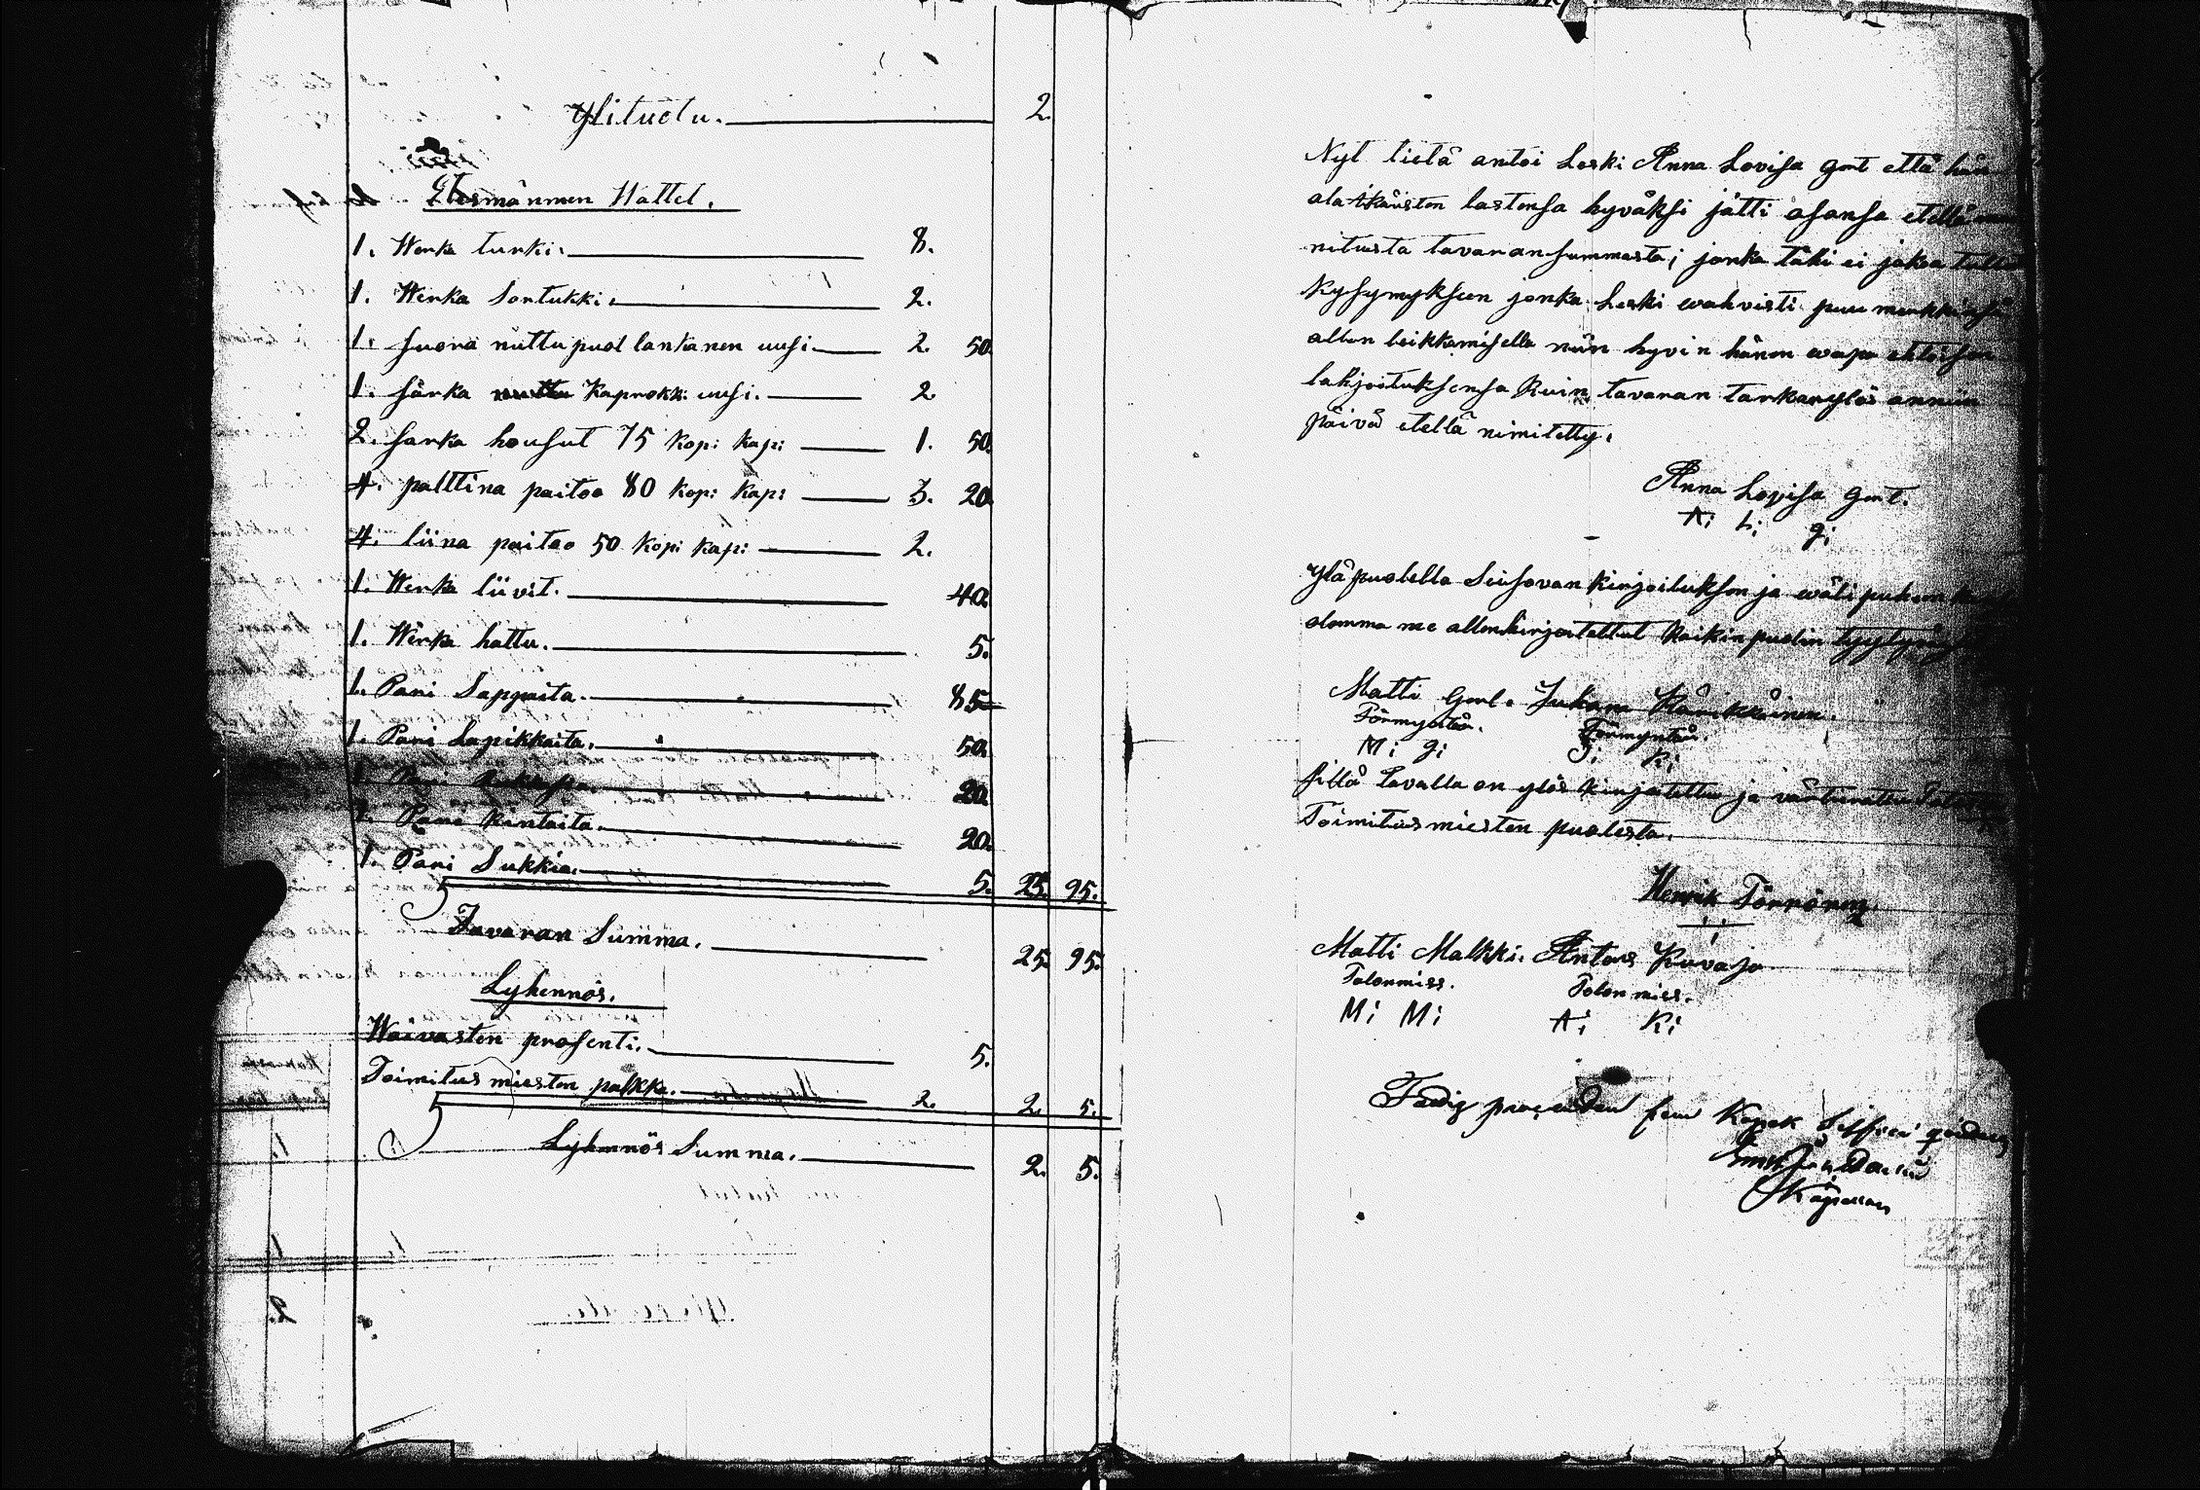 Ylituotu. 2.
Edesmännen Wattet.
1. Werka turki. 8.
1. Werka Sortukki. 2.
1. Suora nuttu puol lankanen uusi. 2. 50.
1. Särka Kaprokki uusi. 2.
2. Sarka housut 75 kop: kap: 1. 50.
4. palttina paitoa 80 kop: kap: 3. 20.
4. liina paitoa 50 kop: kap: 2.
1. Werka liivit. 40.
1. Werka hattu. 5.
1. Pari Sappaita. 85
1. Pari Lapikkaita. 50.
1. Pari 20.
1. Pari Kintaita. 20.
1. Pari Sukkia. 5. 25. 95.
Tavaran Summa. 25. 95.
Lyhennös.
Waivasten prosenti. 5.
Toimitus miesten palkka. 2. 2. 5.
Lyhennös Summa. 2. 5.
Nyt vielä antoi Leski Anna Lovisa Gert että hän
ala-ikäisten lastensa hyväksi jätti osansa etellä
nitusta tavaran summasta; jonka tähi ei jakoa tulle
Kysymykseen jonka Leski wahvisti puu merkkinsä
allen leikkamisella niin hyvin hänen wapa ehtoisen
lahjoituksensa Kuin tavaran tarkan ylös annin
päivä etellä nimitetty.
Anna Lovisa Gert.
A; L; g;
Ylä puolella Seisovan kirjoituksen ja wäli puheen
olemma me allenkirjoitettut Kaikin puolin
Matti Gert. Juhana
Förmyntäri. Förmyntäri.
M; g; J; K;
Sillä tavalla on ylös kirjoitettu ja
Toimitus miesten puolesta.
Henrik Törrönen
Matti Malkki. Antars Kuvaja
Talonmies. Talonmies.
M; M; A; K;
Fattig procenten fem Kopek Silfver